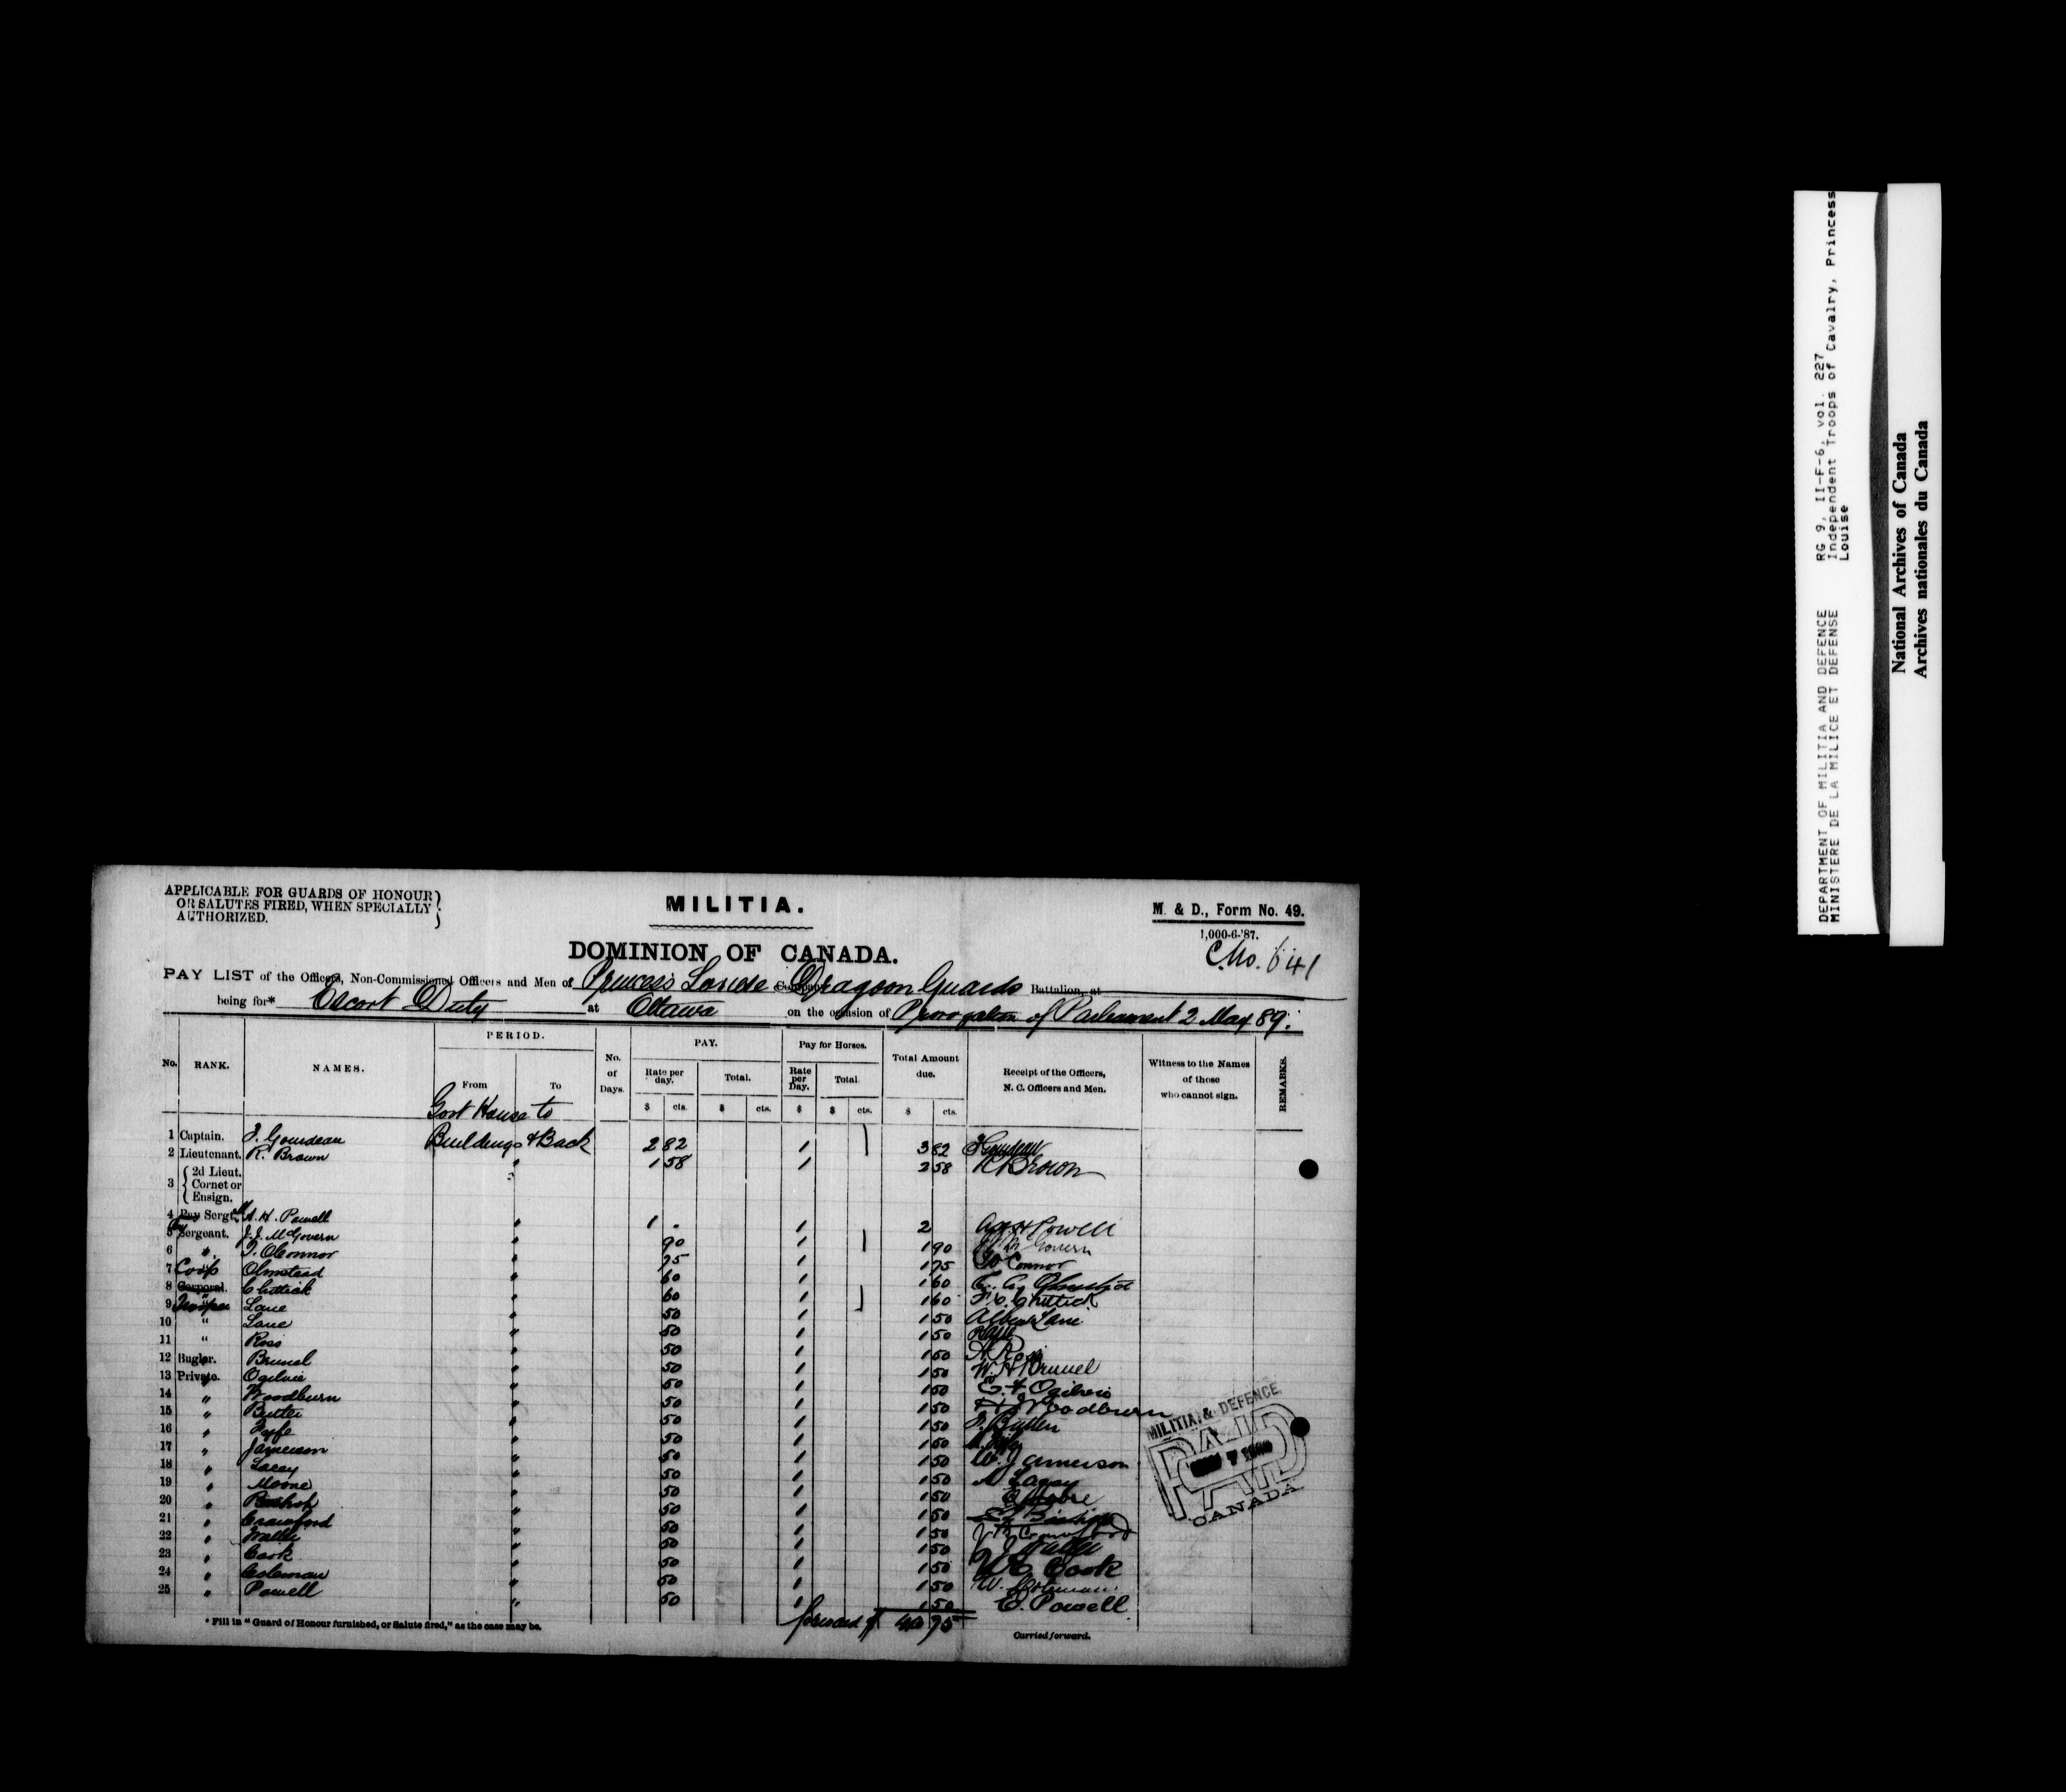 APPLICABLE FOR GUARDS OF HONOUR
OR SALUTES FIRED, WHEN SPECIALLY
AUTHORIZED.
MILITIA.
M. & D., Form No. 49.
1,000-6-'87.
C.No. 641
DOMINION OF CANADA.
PAY LIST of the Officers, Non-Commissioned Officers and Men of Princess Louise Company Dragoon Guards Battalion, at
being for* Escort Duty at Ottawa on the occasion of Prorogation of Parliament 2 May 89.
No. RANK. NAMES. PERIOD. No. of Days. PAY. Pay for Horses. Total Amount due. Receipt of the Officers, N. C. Officers and Men. Witness to the Names of those who cannot sign. REMARKS.
From To Rate per day. Total. Rate per Day. Total
$ cts. $ cts. $ $ cts. $ cts.
Govt House to
1 Captain. J. Gourdeau Buildings & Back 2 82 1 3 82 Gourdeau
2 Lieutenant. R. Brown " 1 58 1 2 58 R Brown
3 2d Lieut. Cornet or Ensign.
4 Pay Sergt. A. H. Powell " 1 . 1 2 H Powell
5 Pay Sergeant. J. J. McGovern " 90 1 1 90 McGovern
6 " T. OConnor " 75 1 1 75 OConnor
7 Corp Olmstead " 60 1 1 60 Olmstead
8 Corporal. Chittick " 60 1 1 60 Chittick
9 Trooper Lane " 50 1 1 50 Albert Lane
10 " Lane " 50 1 1 50
11 " Ross " 50 1 1 50 A Ross
12 Bugler. Brunel " 50 1 1 50 W. H Brunel
13 Private. Ogilvie " 50 1 1 50 Ogilvie
14 " Woodburn " 50 1 1 50 Woodburn
15 " Butler " 50 1 1 50 J. Butler
16 " Fyfe " 50 1 1 50
17 " Jamerson " 50 1 1 50 W. Jamerson
18 " Lacey " 50 1 1 50 Lacey
19 " Moore " 50 1 1 50 Moore
20 " Bishop " 50 1 1 50 Bishop
21 " Crawford " 50 1 1 50 Crawford
22 " " 50 1 1 50
23 " Cook " 50 1 1 50 Cook
24 " Coleman " 50 1 1 50 W. Coleman
25 " Powell " 50 1 1 50 E. Powell
forward $ 40 75
* Fill in "Guard of Honour furnished, or Salute fired," as the case may be.
Carried forward.
MILITIA & DEFENCE
PAID
CANADA
DEPARTMENT OF MILITIA AND DEFENCE
MINISTERE DE LA MILICE ET DEFENSE
RG 9, II-F-6, vol. 227
Independent Troops of Cavalry, Princess
Louise
National Archives of Canada
Archives nationales du Canada